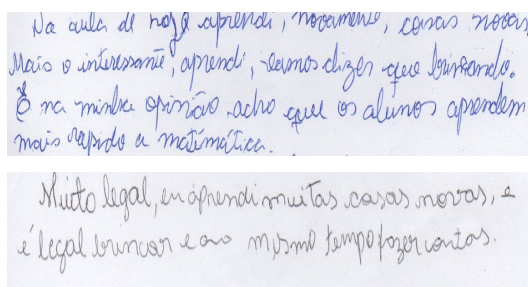 Na aula de hoje aprendi, novamente, coisas novas,
Mais o interessante, aprendi, vamos dizer que brincando.
E na minha opinião acho que os alunos aprendem
mais rápido a matimática.
Muito legal, eu aprendi muitas coisas novas, e
é legal brincar e ao mesmo tempo fazer contas.